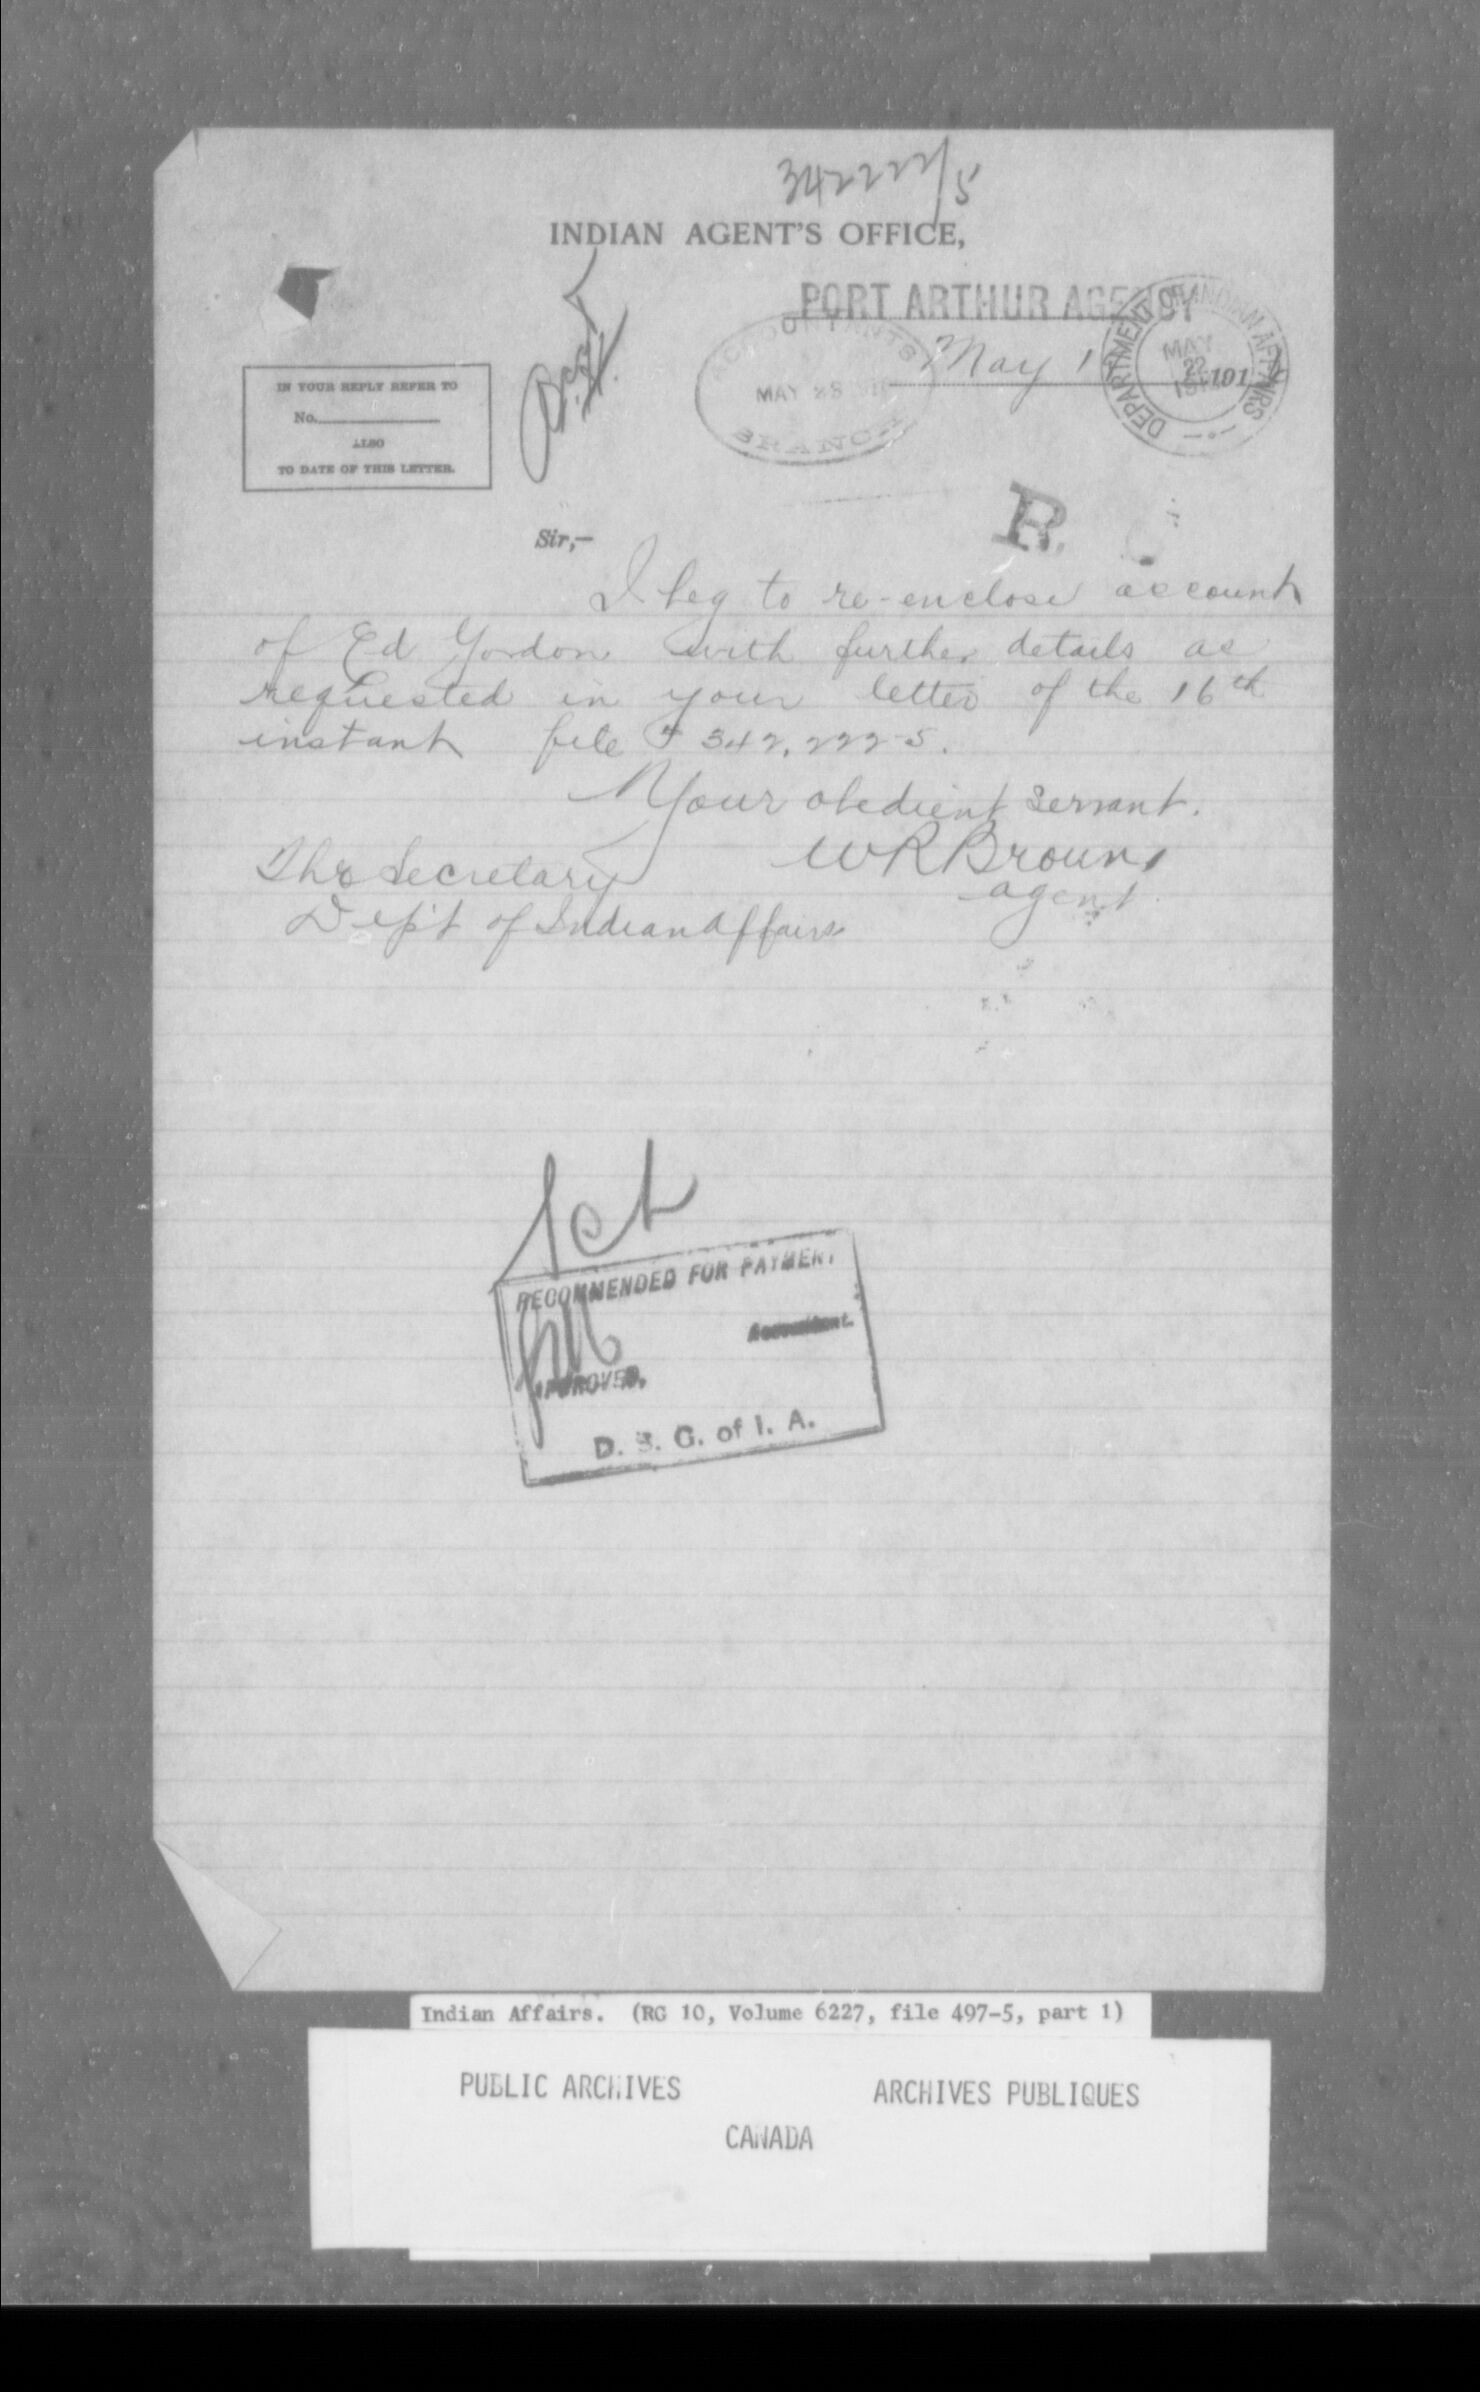 342222/5
INDIAN AGENT'S OFFICE,
PORT ARTHUR AGENCY
DEPARTMENT OF INDIAN AFFAIRS
MAY 22
ACCOUNTANTS BRANCH
MAY 28
May 1
191
IN YOUR REPLY REFER TO
No.
ALSO
TO DATE OF THIS LETTER.
R.
Sir,—
I beg to re-enclose account
of Ed Gordon with further details as
requested in your letter of the 16th
instant file 342,222-5.
Your obedient servant.
WR Brown,
agent.
The Secretary
Dep't of Indian Affairs
RECOMMENDED FOR PAYMENT
Accountant.
APPROVED,
D. S. G. of I. A.
Indian Affairs. (RG 10, Volume 6227, file 497-5, part 1)
PUBLIC ARCHIVES ARCHIVES PUBLIQUES
CANADA